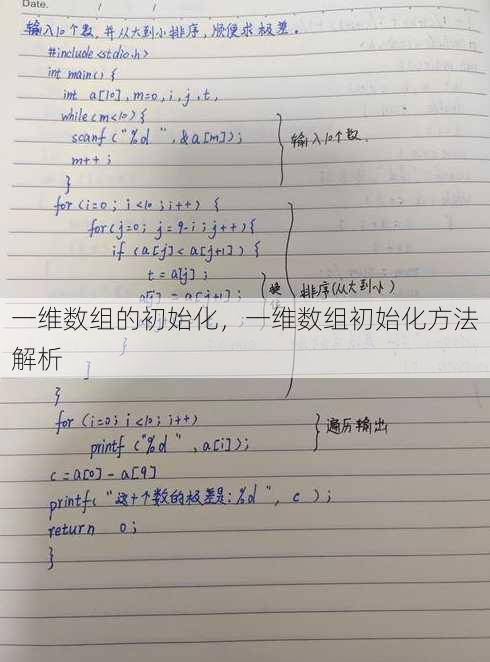 Date.
输入10个数,并从大到小排序,顺便求极差。
#include<stdio.h>
int main() {
int a[10],m=0,i,j,t,
while(m<10){
scanf ("%d ",&a[m]);
m++;
}
输入10个数.
for(i=0; i<10;i++) {
for(j=0; j=9-i;j++){
if (a[j]<a[j+1]) {
t = a[j];
a[j] = a[j+1];
换
排序(从大到小)
一维数组的初始化，一维数组初始化方法
解析
}
}
}
for (i=0; i<10; i++)
printf ("%d ",a[i]);
遍历输出
c=a[0]-a[9]
printf("这十个数的极差是:%d", c );
return 0;
}